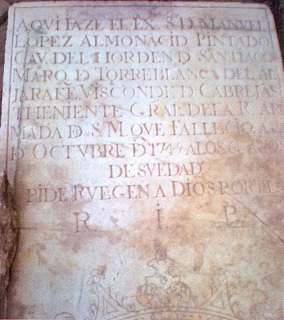 AQVI IAZE EL EX. S. D. MANVEL
LOPEZ ALMONACID PINTADO
CAV. DEL HORDEN D SANTIAGO
MARQ. D TORREBLANCA DEL AL
JARAFE, VISCONDE D CABREJAS
THENIENTE GRAL. DE LA R. AR
MADA D S.M. QVE FALLECIO A
D OCTVBRE D 1745 A LOS AÑO
DE SV EDAD
PIDE RVEGEN A DIOS POR EL
R. I. P.